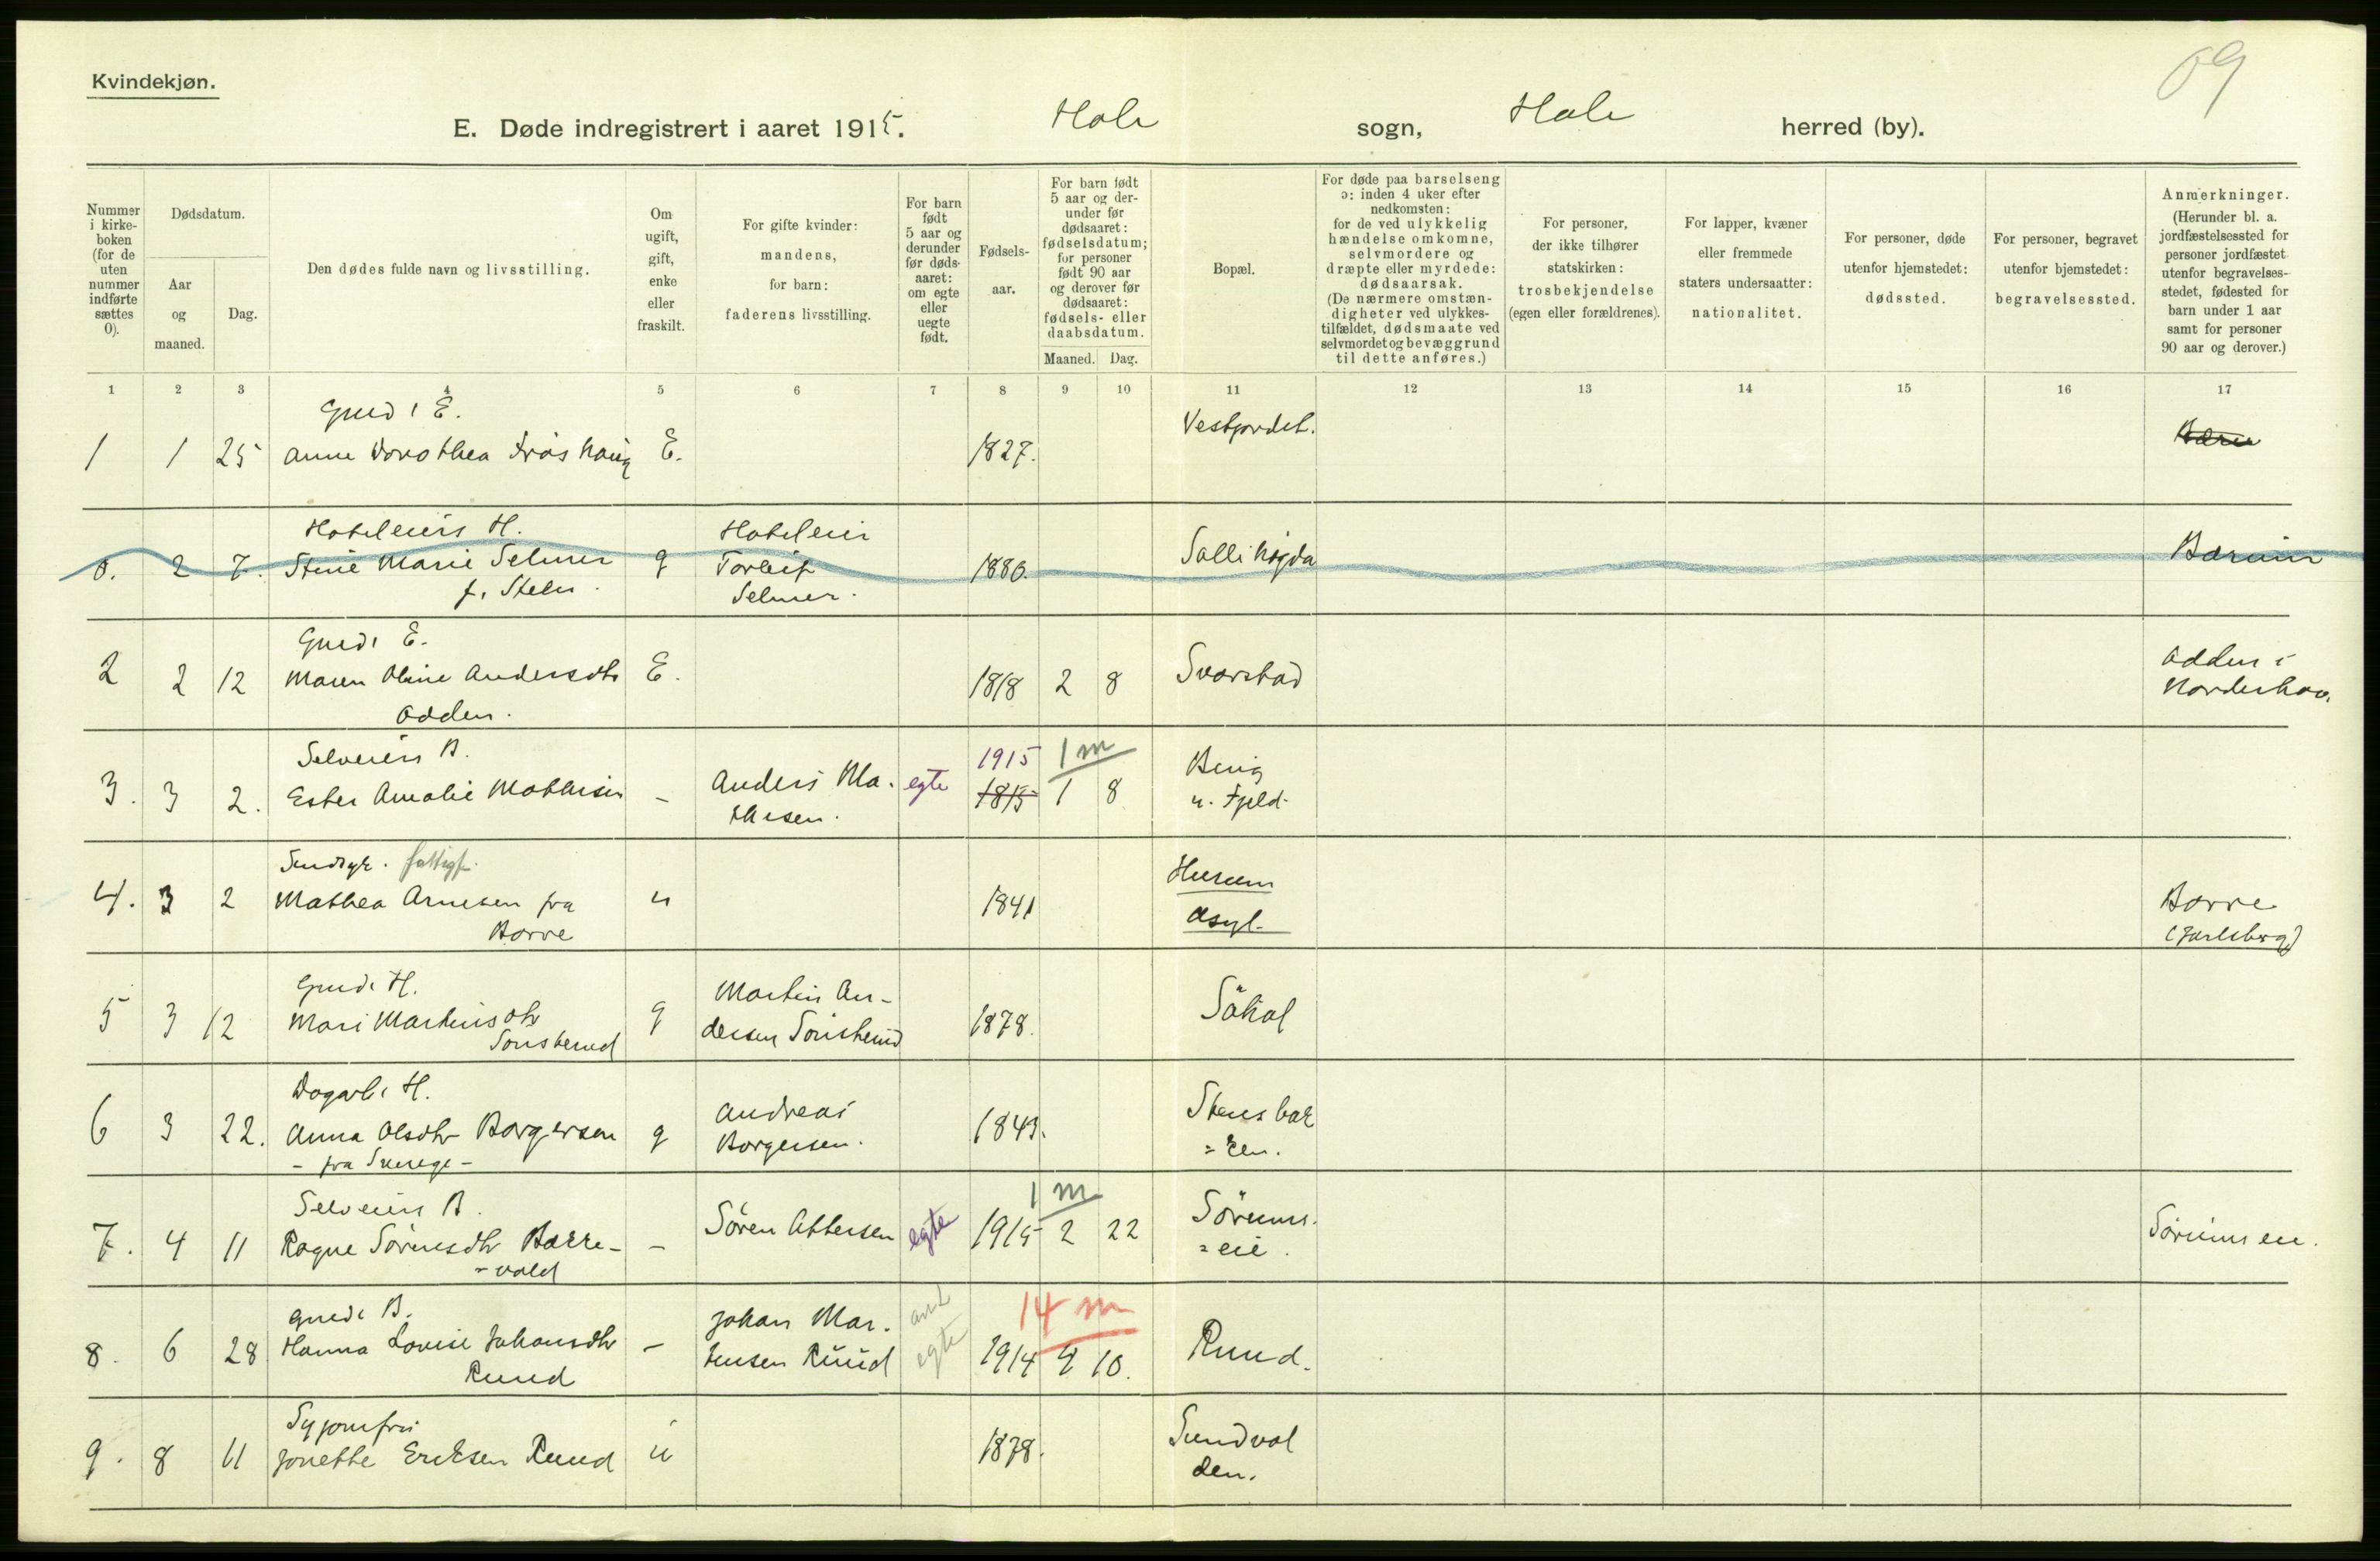 Kvindekjøn.
69
E. Døde indregistrert i aaret 1915. Hole sogn, Hole herred (by).
Nummer i kirke-boken (for de uten nummer indførte sættes 0).
Dødsdatum.
Aar og maaned.
Dag.
Den dødes fulde navn og livsstilling.
Om ugift, gift, enke eller fraskilt.
For gifte kvinder: mandens, for barn: faderens livsstilling.
For barn født 5 aar og derunder før døds-aaret: om egte eller uegte født.
Fødsels-aar.
For barn født 5 aar og der-under før dødsaaret: fødselsdatum; for personer født 90 aar og derover før dødsaaret: fødsels- eller daabsdatum.
Maaned. Dag.
Bopæl.
For døde paa barselseng ɔ: inden 4 uker efter nedkomsten: for de ved ulykkelig hændelse omkomne, selvmordere og dræpte eller myrdede: dødsaarsak. (De nærmere omstæn-digheter ved ulykkes-tilfældet, dødsmaate ved selvmordet og bevæggrund til dette anføres.)
For personer, der ikke tilhører statskirken: trosbekjendelse (egen eller forældrenes).
For lapper, kvæner eller fremmede staters undersaatter: nationalitet.
For personer, døde utenfor hjemstedet: dødssted.
For personer, begravet utenfor hjemstedet: begravelsessted.
Anmerkninger. (Herunder bl. a. jordfæstelsessted for personer jordfæstet utenfor begravelses-stedet, fødested for barn under 1 aar samt for personer 90 aar og derover.)
1 2 3 4 5 6 7 8 9 10 11 12 13 14 15 16 17
Grd. E.
1 1 25 Anne Dorothea Frøshaug E. 1827. Vestjordet.
Hoteleiers H.
0. 2 7. Stine Marie Selmer g Hoteleier Torleif 1880. Sollihøgda Bærum
f. Steen. Selmer.
Grd. E.
2 2 12 Maren Oline Andersdtr E. 1818 2 8 Svarstad Adden i Norderhov.
Odden.
Selveiers B.
3. 3 2. Ester Amalie Mathisen - Anders Ma- egte 1915 1815 1 m 1 8 Berg
thisen. u. Fjeld.
Sindsyk. fattigf.
4. 3 2 Mathea Arnesen fra u 1841 Husum Borre
Borre Asyl. (Jarlsberg)
Grd. H.
5 3 12 Mari Martinsdtr g Martin An- 1878. Såhol
Sønsterud dersen Sønsterud
Dagarb. H.
6 3 22. Anna Olsdtr Borgersen g Andreas 1843. Stensbak
- fra Sverige - Borgersen. =ken.
Selveiers B. 1 m
7. 4 11 Ragne Sørensdtr Bakke- - Søren Ottersen egte 1915 2 22 Sørums- Sørumseie.
=vold =eie.
Grd. B. 14 m
8. 6 28 Hanna Lovise Johansdtr - Johan Mar- egte 1914 4 10. Ruud.
Ruud tinsen Ruud
Syjomfru
9. 8 11 Jonette Eriksen Ruud u 1878. Sundvol
den.